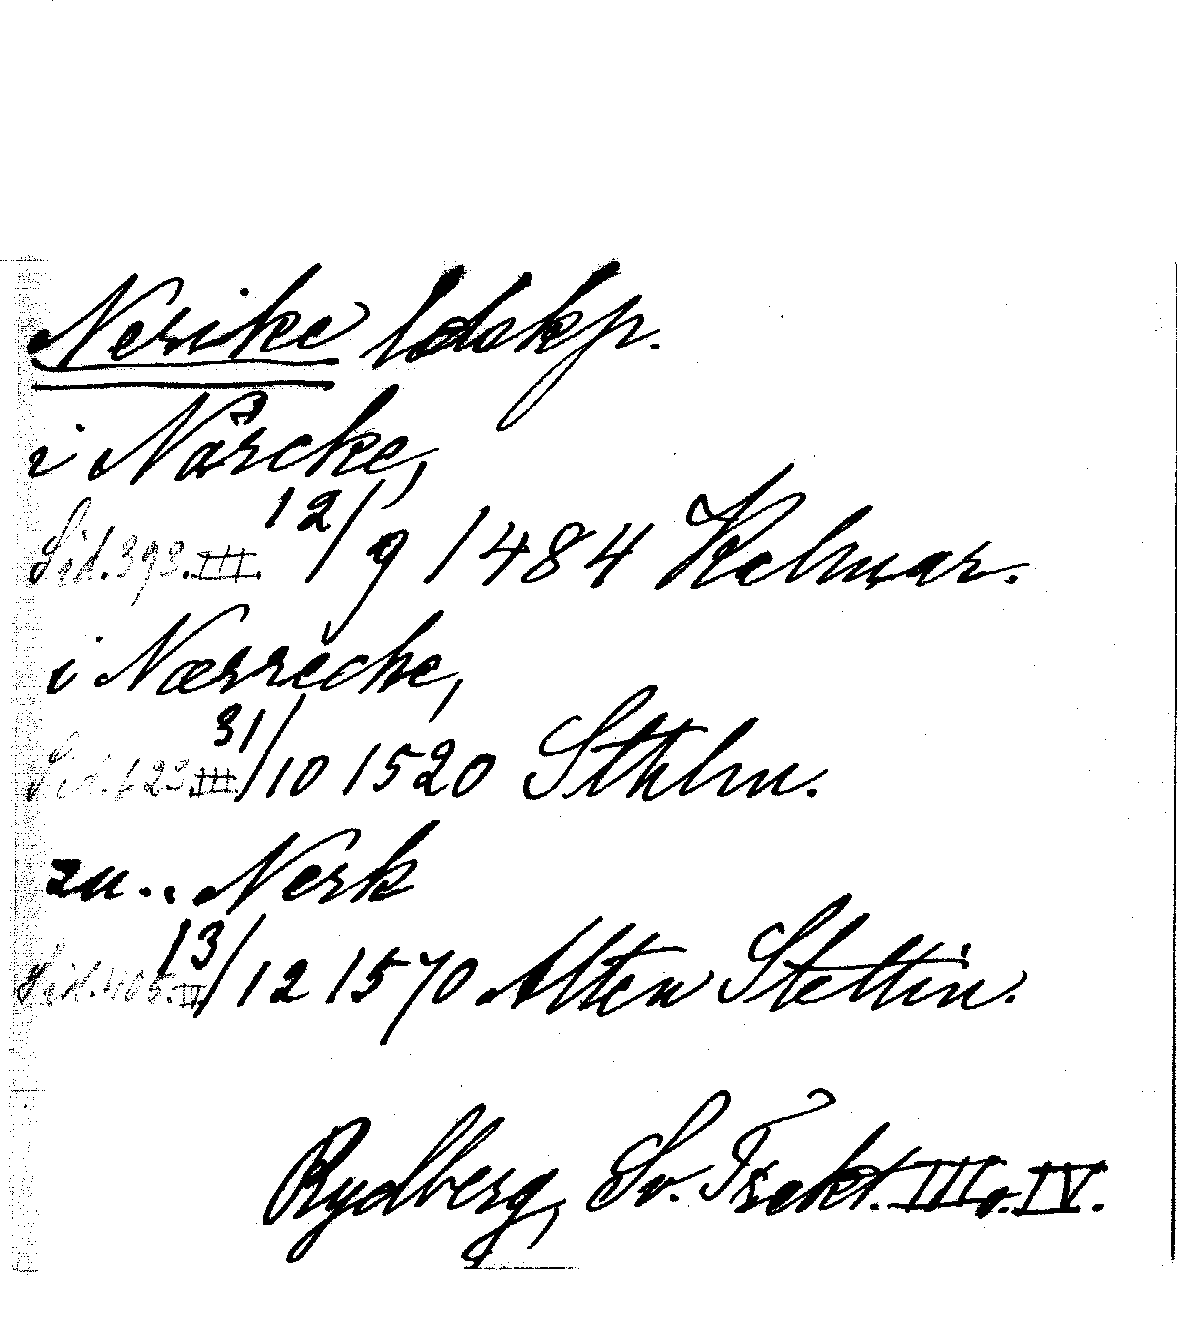 Nerike ldskp.
i Närcke,
Sid. 393. III. 12/9 1484 Kalmar.
i Nærricke,
Sid. 623 III 31/10 1520 Sthlm.
zu.. Nerk
Sid. 405. IV 13/12 1570 Alten Stettin.
Rydberg, Sv. Trakt. III o. IV.